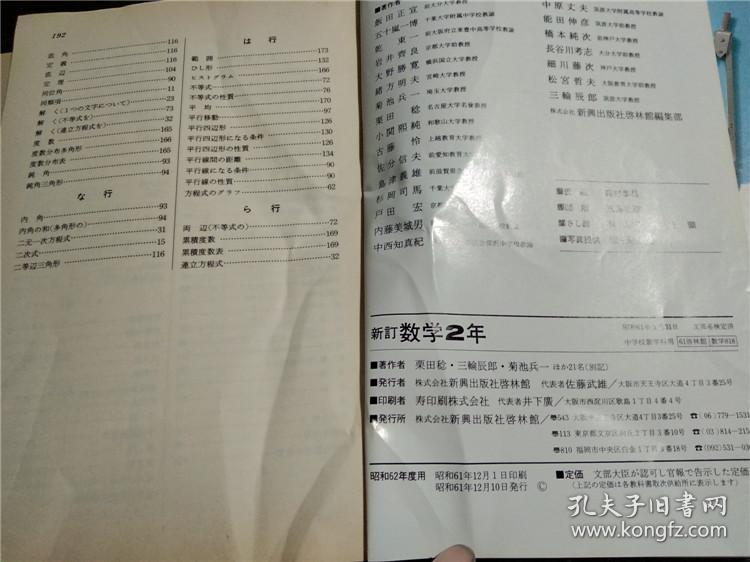 192
底角 116
定義 116
底辺 104
定理 90
同位角 11
同類項 23
解く(1つの文字について) 73
解く(不等式を) 32
解く(連立方程式を) 165
度数 166
度数分布多角形 165
度数分布表 93
鈍角 94
鈍角三角形
な行
内角 93
内角の和(多角形の) 94
二元一次方程式 31
二次式 15
二等辺三角形 116
は行
範囲 173
ひし形 132
ヒストグラム 166
不等式 72
不等式の性質 76
平均 170
平行移動
平行四辺形
平行四辺形になる条件 130
平行四辺形の性質
平行線間の距離 134
平行線になる条件 90
平行線の性質
方程式のグラフ 62
ら行
両辺(不等式の) 72
累積度数 169
累積度数表 169
連立方程式 32
■著作者
飯田正宣
五十嵐一博 千葉大学附属中学校教諭
乾東一
岩井齊良 京都大学教授
大野勝寛 横浜国立大学教授
緒方明夫 宮崎大学教授
菊池兵一 埼玉大学教授
栗田稔 名古屋大学名誉教授
小関煕純 和歌山大学教授
古藤怜 上越教育大学教授
佐分信夫 前愛知教育大学
島津義雄
杉岡司馬 千葉大
戸田宏
内藤美城男
中西知真紀
中原丈夫 筑波大学附属高等学校教諭
能田伸彦 筑波大学助教授
橋本純次
長谷川考志 大分大学助教授
細川藤次 神戸大学教授
松宮哲夫
三輪辰郎 筑波大学教授
株式会社 新興出版社啓林館編集部
新訂 数学2年
文部省検定済
中学校数学科用 61啓林館 数学818
■著作者 栗田稔・三輪辰郎・菊池兵一 ほか21名(別記)
■発行者 株式会社新興出版社啓林館 代表者佐藤武雄/大阪市天王寺区大道4丁目3番25号
■印刷者 寿印刷株式会社 代表者井下廣/大阪市西淀川区歌島1丁目4番4号
■発行所 株式会社新興出版社啓林館/〒543 大阪市天王寺区大道4丁目3番25号 ☎(06)779-1531
〒113 東京都文京区向丘2丁目3番10号 ☎(03)814-215
〒810 福岡市中央区白金1丁目 番18号 ☎(092)531-036
昭和62年度用 昭和61年12月1日印刷
昭和61年12月10日発行 ©
■定価 文部大臣が認可し官報で告示した定価
(上記の定価は各教科書取次供給所に表示します)
孔夫子旧书网
www.kongfz.com